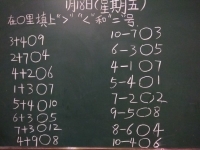 1月18日(星期五)
在○里填上">""<"和"="号.
3+4○9
2+7○4
4+2○6
1+3○7
5+4○10
6+3○5
7+3○12
4+9○8
10-7○3
6-3○5
4-1○7
5-4○1
7-2○2
9-5○8
8-6○4
10-4○6